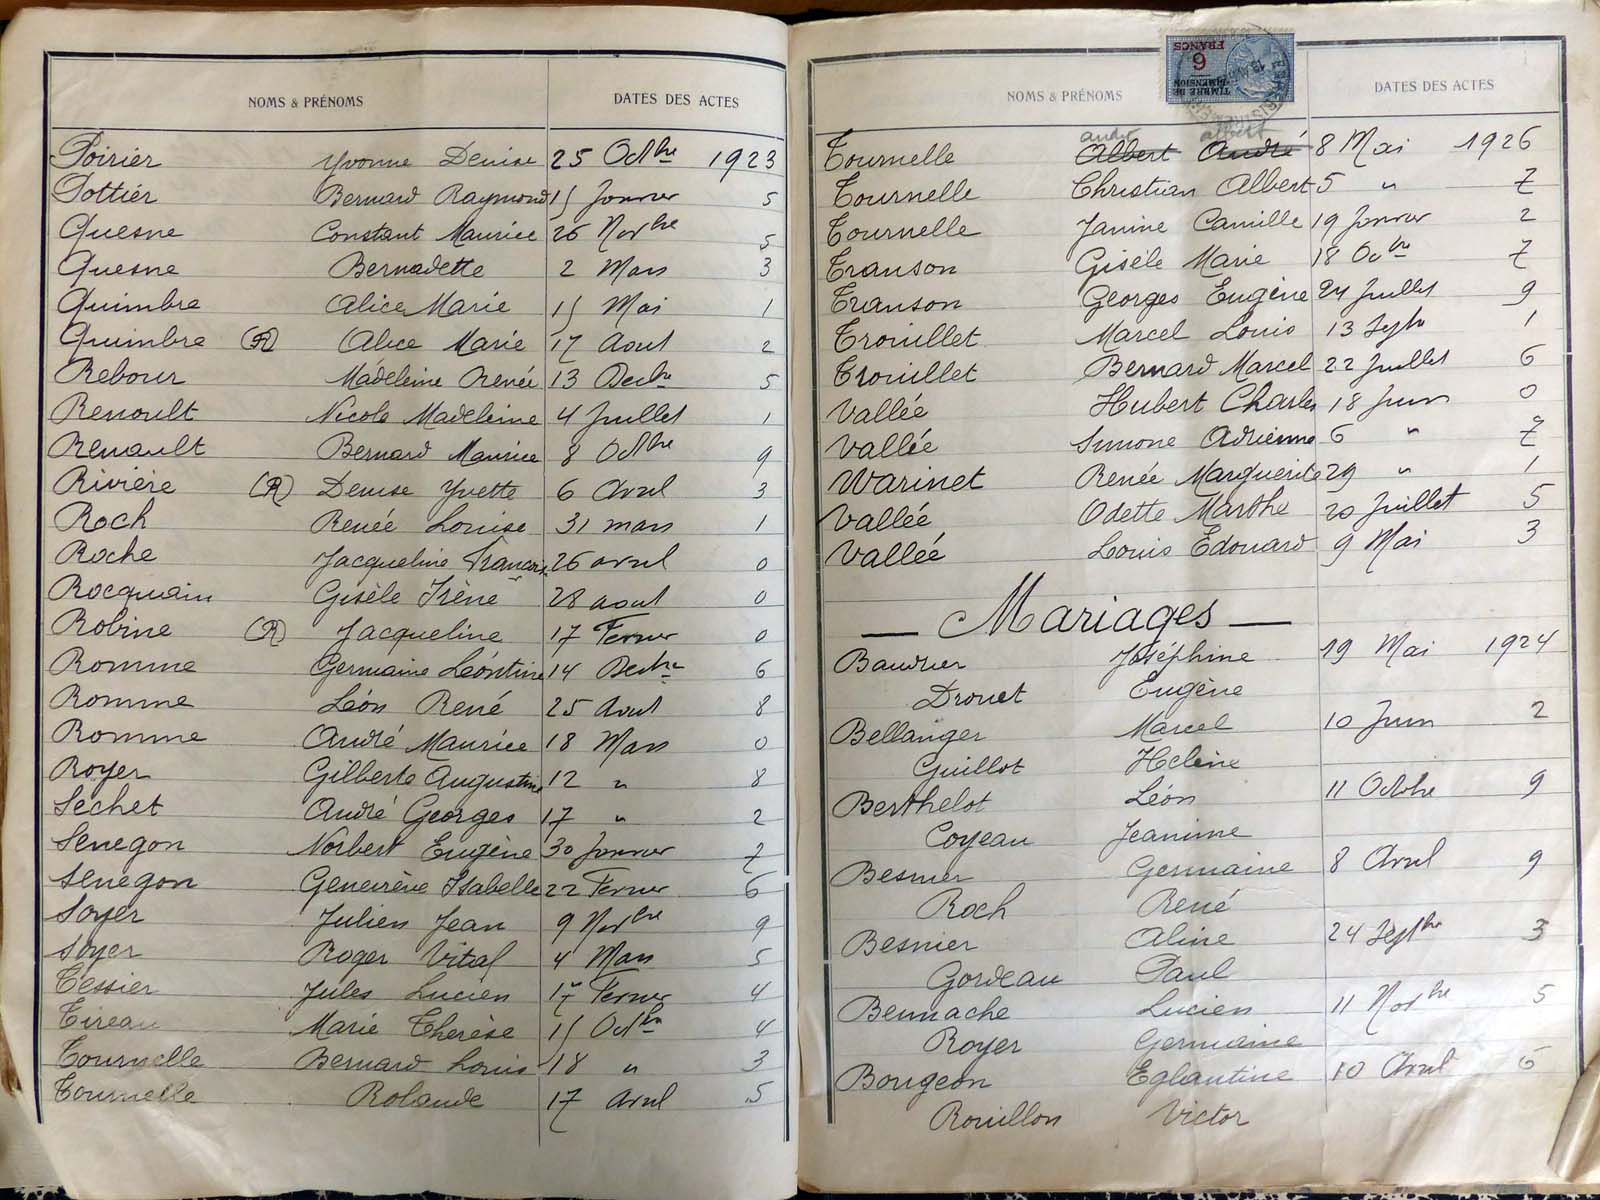 NOMS & PRÉNOMS DATES DES ACTES
Poirier Yvonne Denise 25 Octbre 1923
Pottier Bernard Raymond 15 Janvier 5
Quesne Constant Maurice 26 Novbre 5
Quesne Bernadette 2 Mars 3
Quimbre Alice Marie 15 Mai 1
Quimbre (R) Alice Marie 17 Aout 2
Rebour Madeleine Renée 13 Decbre 5
Renoult Nicole Madeleine 4 Juillet 1
Renault Bernard Maurice 8 Octbre 9
Rivière (R) Denise Yvette 6 Avril 3
Roch Renée Louise 31 mars 1
Roche Jacqueline Francois 26 avril 0
Rocquain Gisèle Irène 28 aout 0
Robine (R) Jacqueline 17 Fevrier 0
Romme Germaine Léontine 14 Decbre 6
Romme Léon René 25 Aout 8
Romme André Maurice 18 Mars 0
Royer Gilberte Augustine 12 " 8
Sechet André Georges 17 " 2
Senegon Norbert Eugène 30 Janvier 7
Senegon Geneviève Isabelle 22 Fevrier 6
Soyer Julien Jean 9 Novbre 9
Soyer Roger Vital 4 Mars 5
Tessier Jules Lucien 17 Fevrier 4
Tireau Marie Therèse 15 Octbre 4
Tournelle Bernard Louis 18 " 3
Tournelle Rolande 17 Avril 5
NOMS & PRÉNOMS DATES DES ACTES
TIMBRE DE DIMENSION
6 FRANCS
andré albert
Tournelle Albert André 8 Mai 1926
Tournelle Christian Albert 5 " 7
Tournelle Janine Camille 19 Janvier 2
Transon Gisèle Marie 18 Ocbre 7
Transon Georges Eugène 24 Juillet 9
Trouillet Marcel Louis 13 Septbre 1
Trouillet Bernard Marcel 22 Juillet 6
Vallée Hubert Charles 18 Juin 0
Vallée Simone Adrienne 6 " 7
Warinet Renée Marguerite 29 " 1
Vallée Odette Marthe 20 Juillet 5
Vallée Louis Edouard 9 Mai 3
— Mariages —
Baudrier Joséphine 19 Mai 1924
Drouet Eugène
Bellanger Marcel 10 Juin 2
Guillot Helène
Berthelot Léon 11 Octobre 9
Coyeau Jeanine
Besnier Germaine 8 Avril 9
Roch René
Besnier Aline 24 Septbre 3
Gordeau Paul
Bennache Lucien 11 Novbre 5
Royer Germaine
Bougeon Eglantine 10 Avril 6
Rouillon Victor